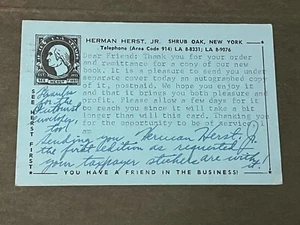 HERMAN HERST, JR. SHRUB OAK, NEW YORK
Telephone (Area Code 914) LA 8-8331; LA 8-9076
Dear Friend: Thank you for your order
and remittance for a copy of our new
book. It is a pleasure to send you under
separate cover today an autographed copy
of it, postpaid. We hope you enjoy it
and that it brings you both pleasure and
profit. Please allow a few days for it
to reach you since it will take a bit
longer than will this card. Thanking you
for the opportunity to be of service.
am
SEE HERST FIRST
SEE HERST FIRST
Thanks
for the
too!
Herman Herst, Jr.
Sending you
the first edition as requested
your taxpayer stickers are worth
it!
YOU HAVE A FRIEND IN THE BUSINESS!